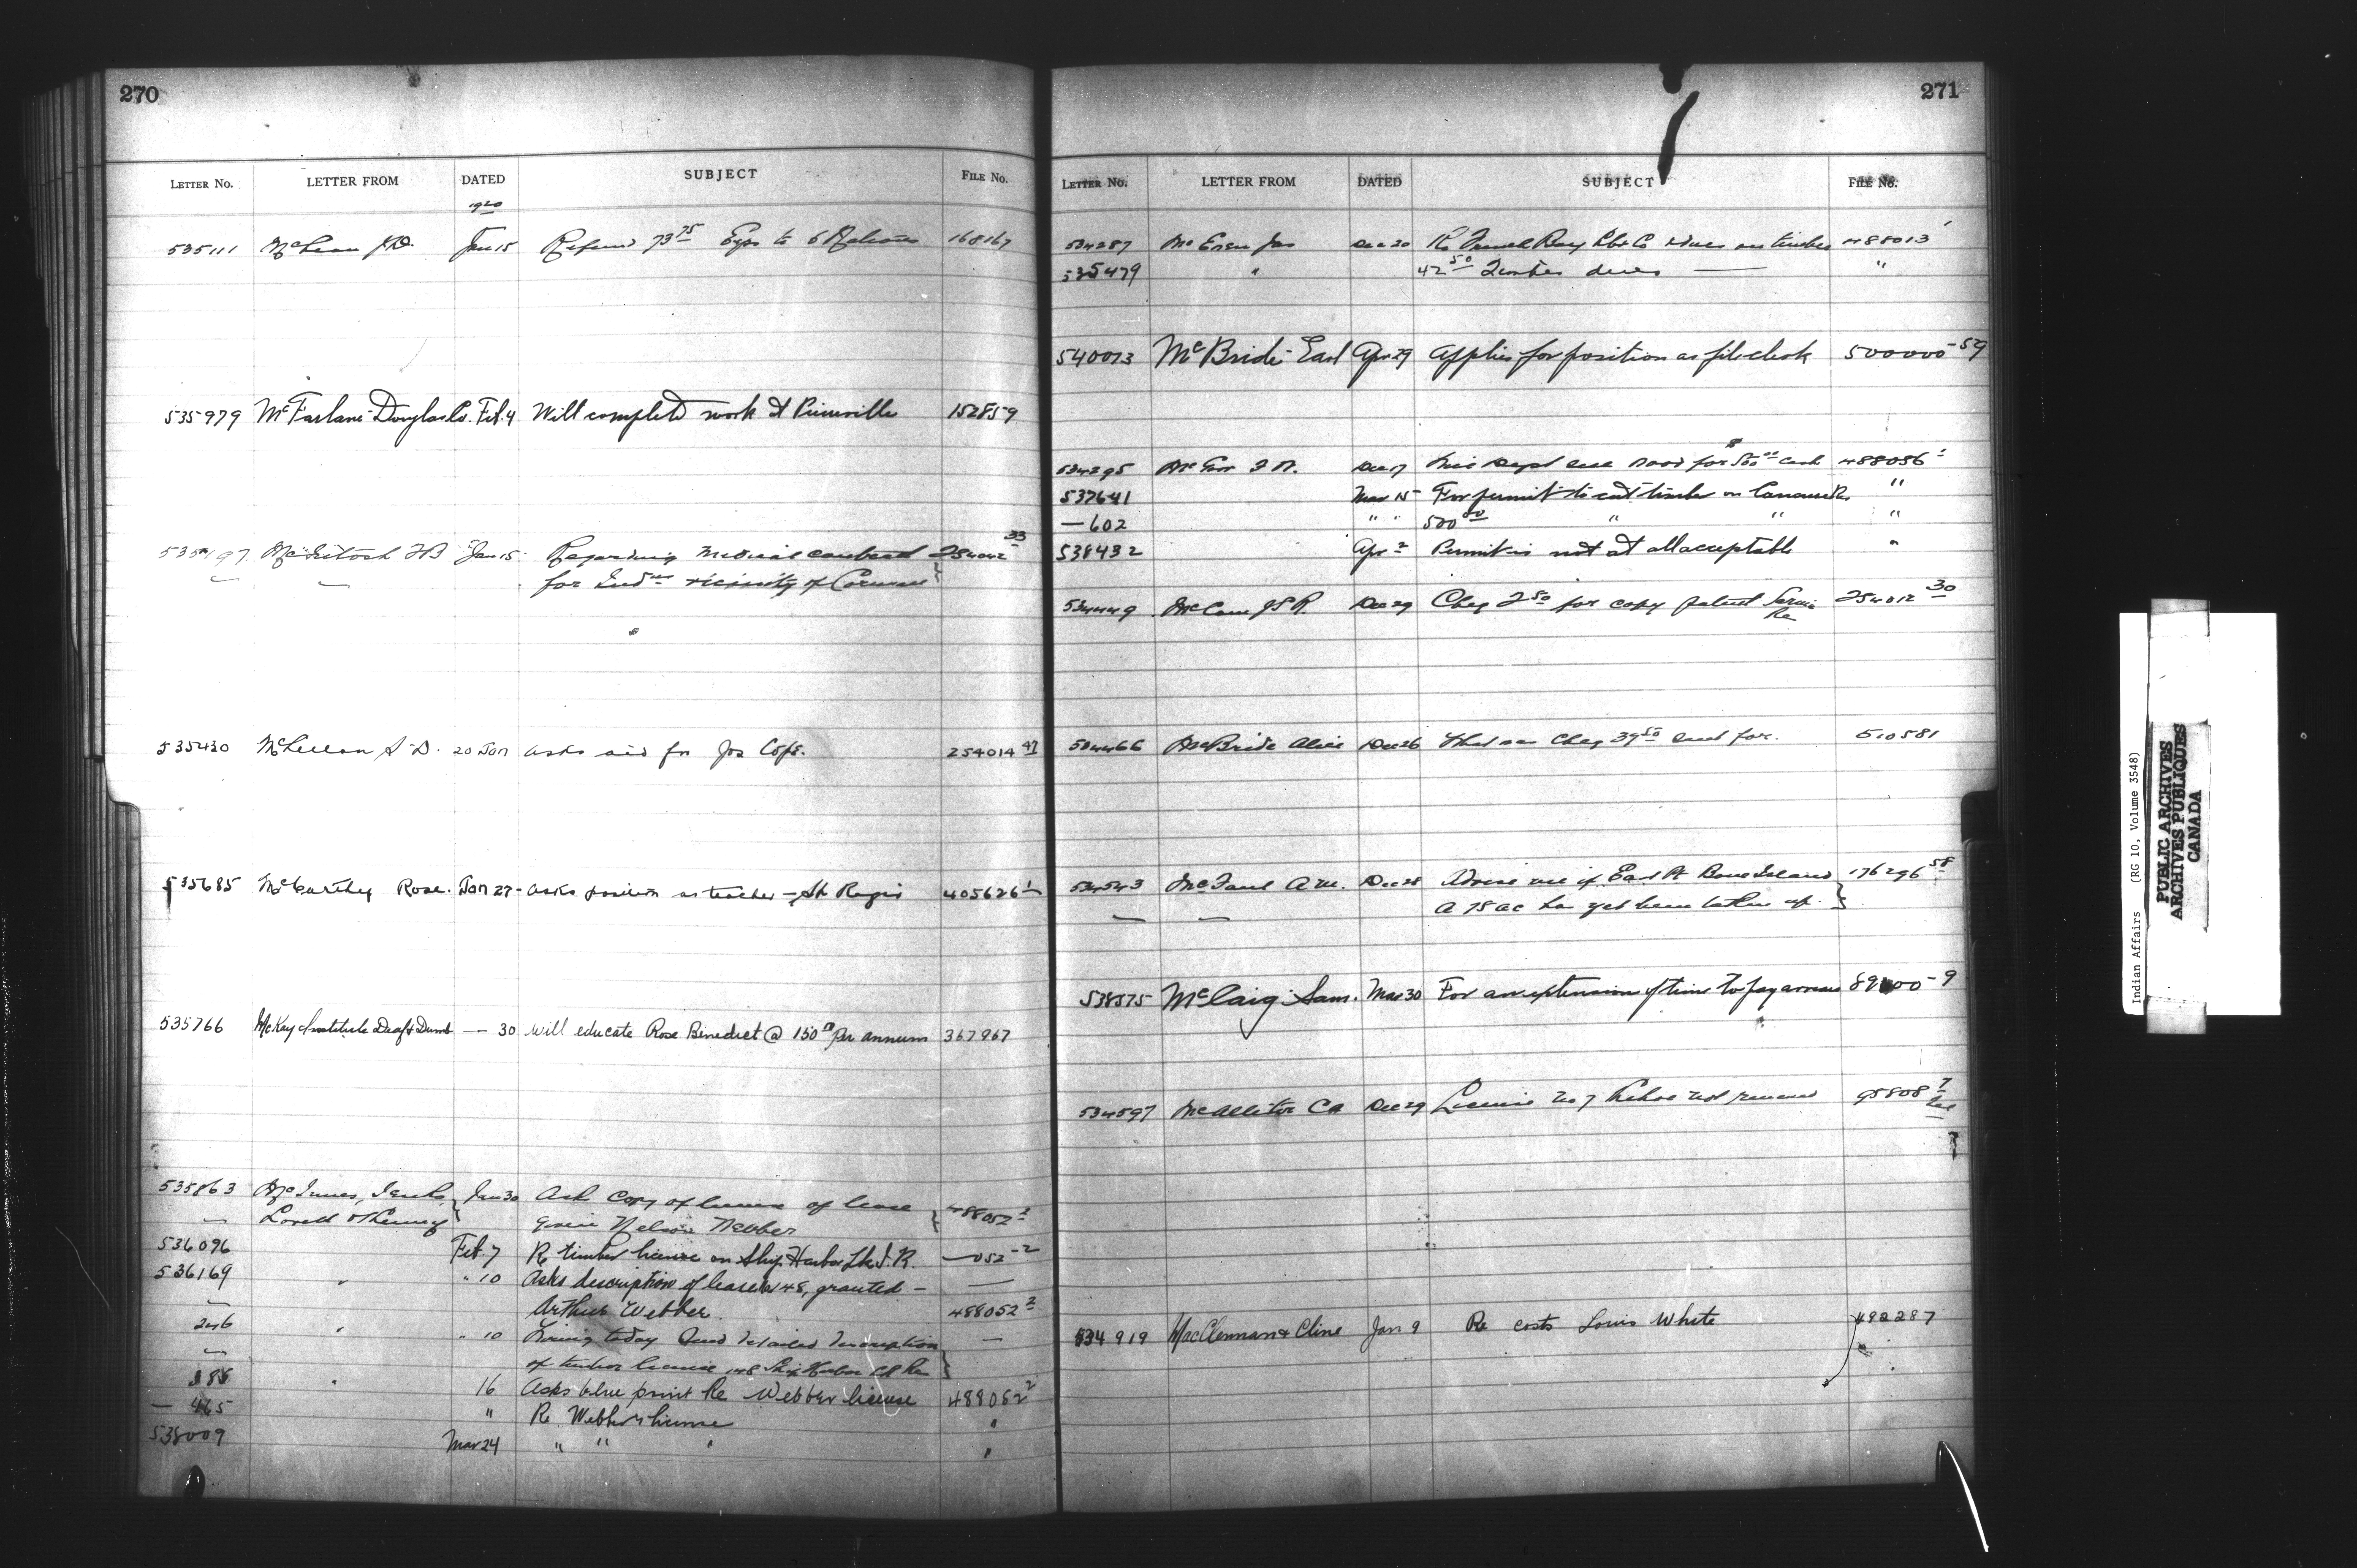 270
LETTER NO. LETTER FROM DATED SUBJECT FILE NO.
1920
535111 McLean J.D. Jan 15 Refund 73 75 Exps to 168167
535979 McFarlane-Douglas Co. Feb. 4 Will complete work at Pierreville 152859
535497 McIntosh Jan 15 Regarding medical 254012 33
for Ind ns vicinity of
535430 McLellan S. D. 20 Jan asks aid for Jos Cope. 254014 47
535685 McCarthy Rose. Jan 27 - asks position as teacher - St Regis 405626 1
535766 McKay Institute Deaf & Dumb — 30 will educate Rose Benedict @ 150 00 per annum 367967
535863 McInnes, Jan 30 Ask copy of license of lease 488052 2
— Lovett & given Nelson Webber
536096 Feb. 7 Re timber license on Ship Harbor Lk I.R. —052-2
536169 " " 10 Asks description of lease 48, granted — —
— Arthur Webber. 488052 2
246 " " 10 today detailed description —
— of timber license 148 Ship Harbor
" 16 Asks blue print Re Webber license 488052 2
— 465 " Re. Webber's license "
538009 Mar 24 " " " "
271
LETTER NO. LETTER FROM DATED SUBJECT FILE NO.
534287 McEwen Jas Dec 20 Re dues on timber 488013
535479 " 42 50 Timber dues — "
540013 McBride - Earl Apr 29 Applies for position as file clerk 500000-59
534295 Dec 17 for 500 00 cash 488056 1
537641 Mar 15 For permit to cut timber on "
— 602 " " 500 00 " " "
538432 Apr 2 Permit is not at all acceptable "
Dec 29 Cheq 2 50 for copy patent Sarnia 254012 30
Re
534466 McBride Alice Dec 26 What was Cheq 39 50 sent for. 510581
534543 A.M. Dec 28 Advise me if East Pt Bone Island 176296 58
— — A 75 ac has yet been taken up.
538575 McCaig Sam. Mar 30 For an extension of time to pay arrears 9
534597 McAllister CA Dec 29 License no 7 not renewed 95808 7
534919 MacClennan & Cline Jan 9 Re costs Louis White 492287
Indian Affairs (RG 10, Volume 3548)
PUBLIC ARCHIVES
ARCHIVES PUBLIQUES
CANADA